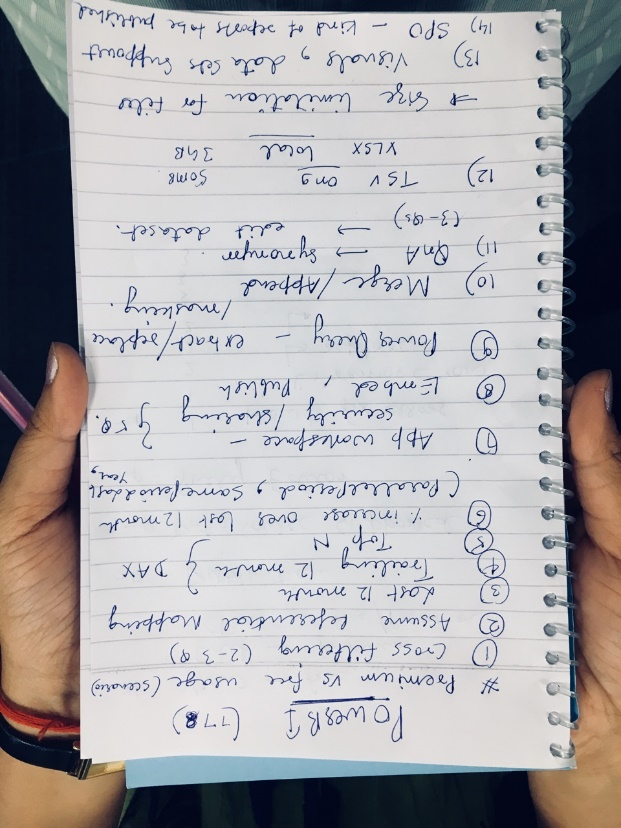 PowerBI (778)
# Premium vs free usage (scenario)
① Cross filtering (2-3 Q)
② Assume Referential Mapping
③ Last 12 month
④ Trailing 12 month } DAX
⑤ Top N
⑥ % increase over last 12 month
(Parallelperiod, Sameperiodlast
Year,
⑦ App workspace -
security / sharing } 5 Q.
⑧ Embed, Publish
⑨ Power Query - extract/replace
/masking.
10) Merge/Append
11) QnA → Synonym
(3-Qs) → edit dataset.
12) TSV ong some
XLSX local 3GB
→ Size limitation for files
13) Visuals, data sets support
14) SPO - kind of reports to be published